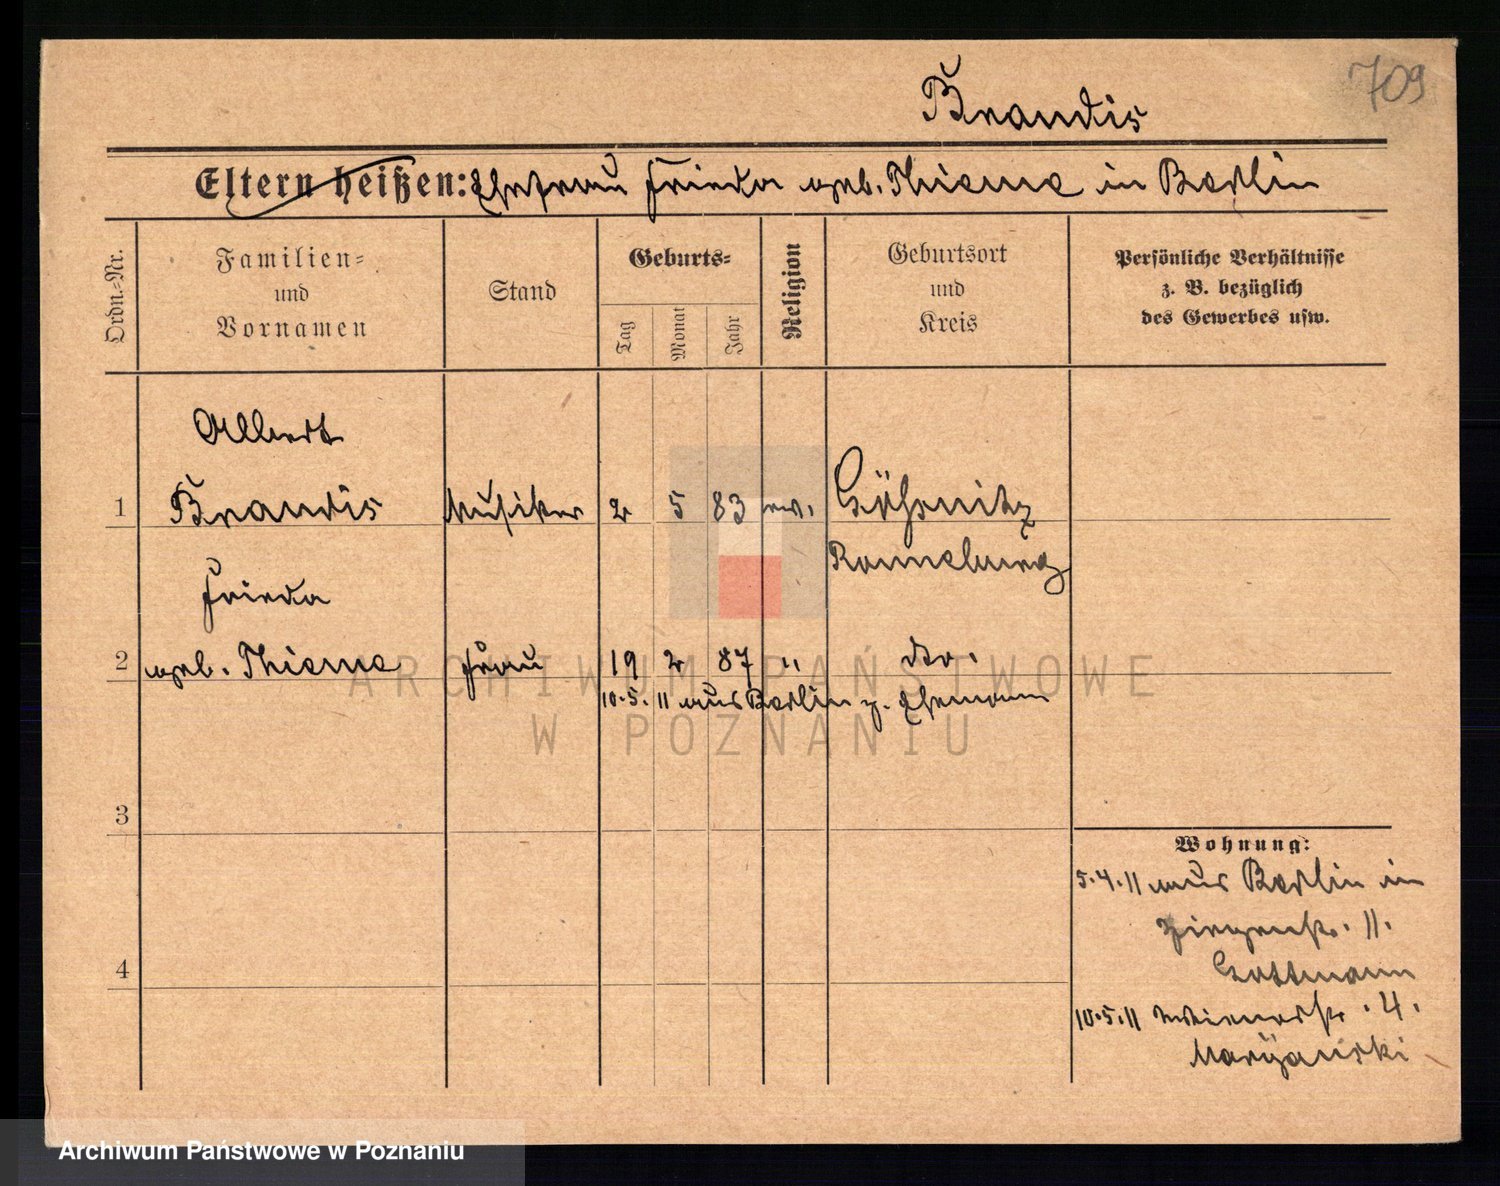 709
Brandis
Eltern heißen: Ehefrau Frieda geb. Thieme in Berlin
Ordn.-Nr.
Familien-
und
Vornamen
Stand
Geburts-
Tag
Monat
Jahr
Religion
Geburtsort
und
Kreis
Persönliche Verhältnisse
z. B. bezüglich
des Gewerbes usw.
Albert
1 Brandis Musiker 2 5 83 ev. Gößnitz
Ronneburg
Frieda
2 geb. Thieme Frau 19 2 87 " dto.
10.5.11 aus Berlin z. Ehemann
3
4
Wohnung:
5.4.11 aus Berlin in
Ziegenstr. 11.
Gottmann
10.5.11 Wienerstr. 4.
Maryanski
ARCHIWUM PAŃSTWOWE
W POZNANIU
Archiwum Państwowe w Poznaniu